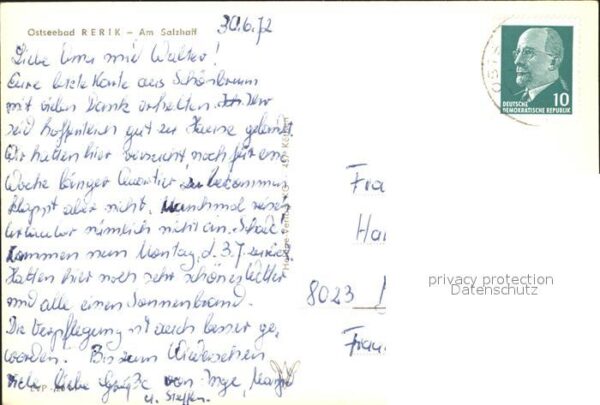 Ostseebad RERIK – Am Salzhaff
30.6.72
Liebe Oma und Walter!
Eure letzte Karte aus Schönbrunn
mit vielen Dank erhalten. Ihr
seid hoffentlich gut zu Hause gelandet.
Wir hatten hier versucht noch für eine
Woche länger Quartier zu bekommen
klappt aber nicht. Manchmal reisen
Urlauber nämlich nicht an. Schade.
Kommen nun Montag, d. 3.7. zurück.
Hatten hier noch sehr schönes Wetter
und alle einen Sonnenbrand.
Die Verpflegung ist auch besser ge-
worden. Bis zum Wiedersehen
viele liebe Grüße von Inge,
u. Steffen.
DEUTSCHE
DEMOKRATISCHE REPUBLIK
10
Fra
Ha
8023
Frau
privacy protection
Datenschutz